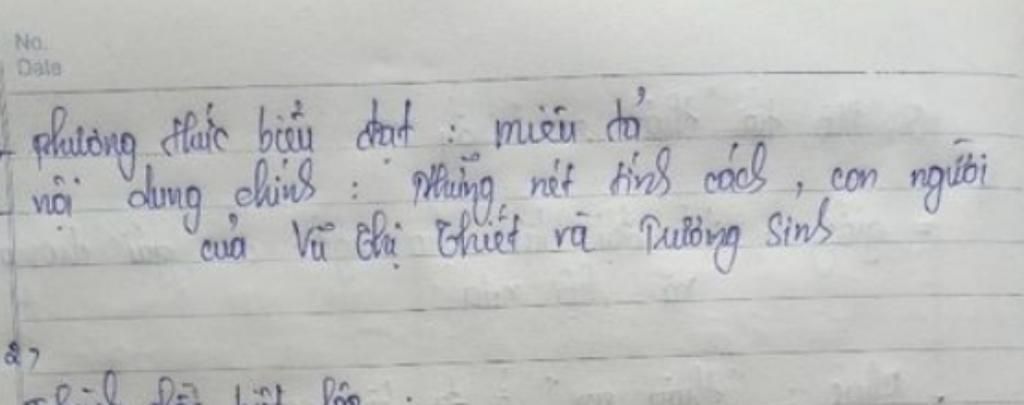 No.
Date
- phương thức biểu đạt : miêu tả
- nội dung chính : Những nét tính cách, con người
của Vũ Thị Thiết và Trường Sinh
2>